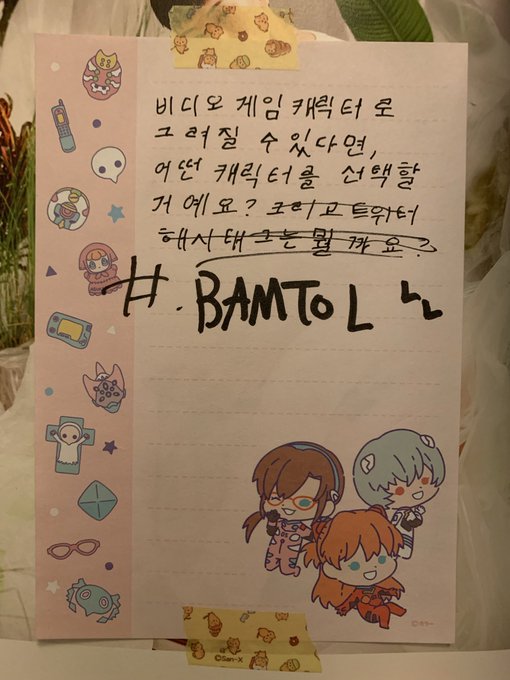 비디오 게임 캐릭터로
그려질 수 있다면,
어떤 캐릭터를 선택할
거예요? 그리고 트위터
해시태그는 뭘까요?
#.BAMTOL ㄴㄴ
©カラー
©San-X